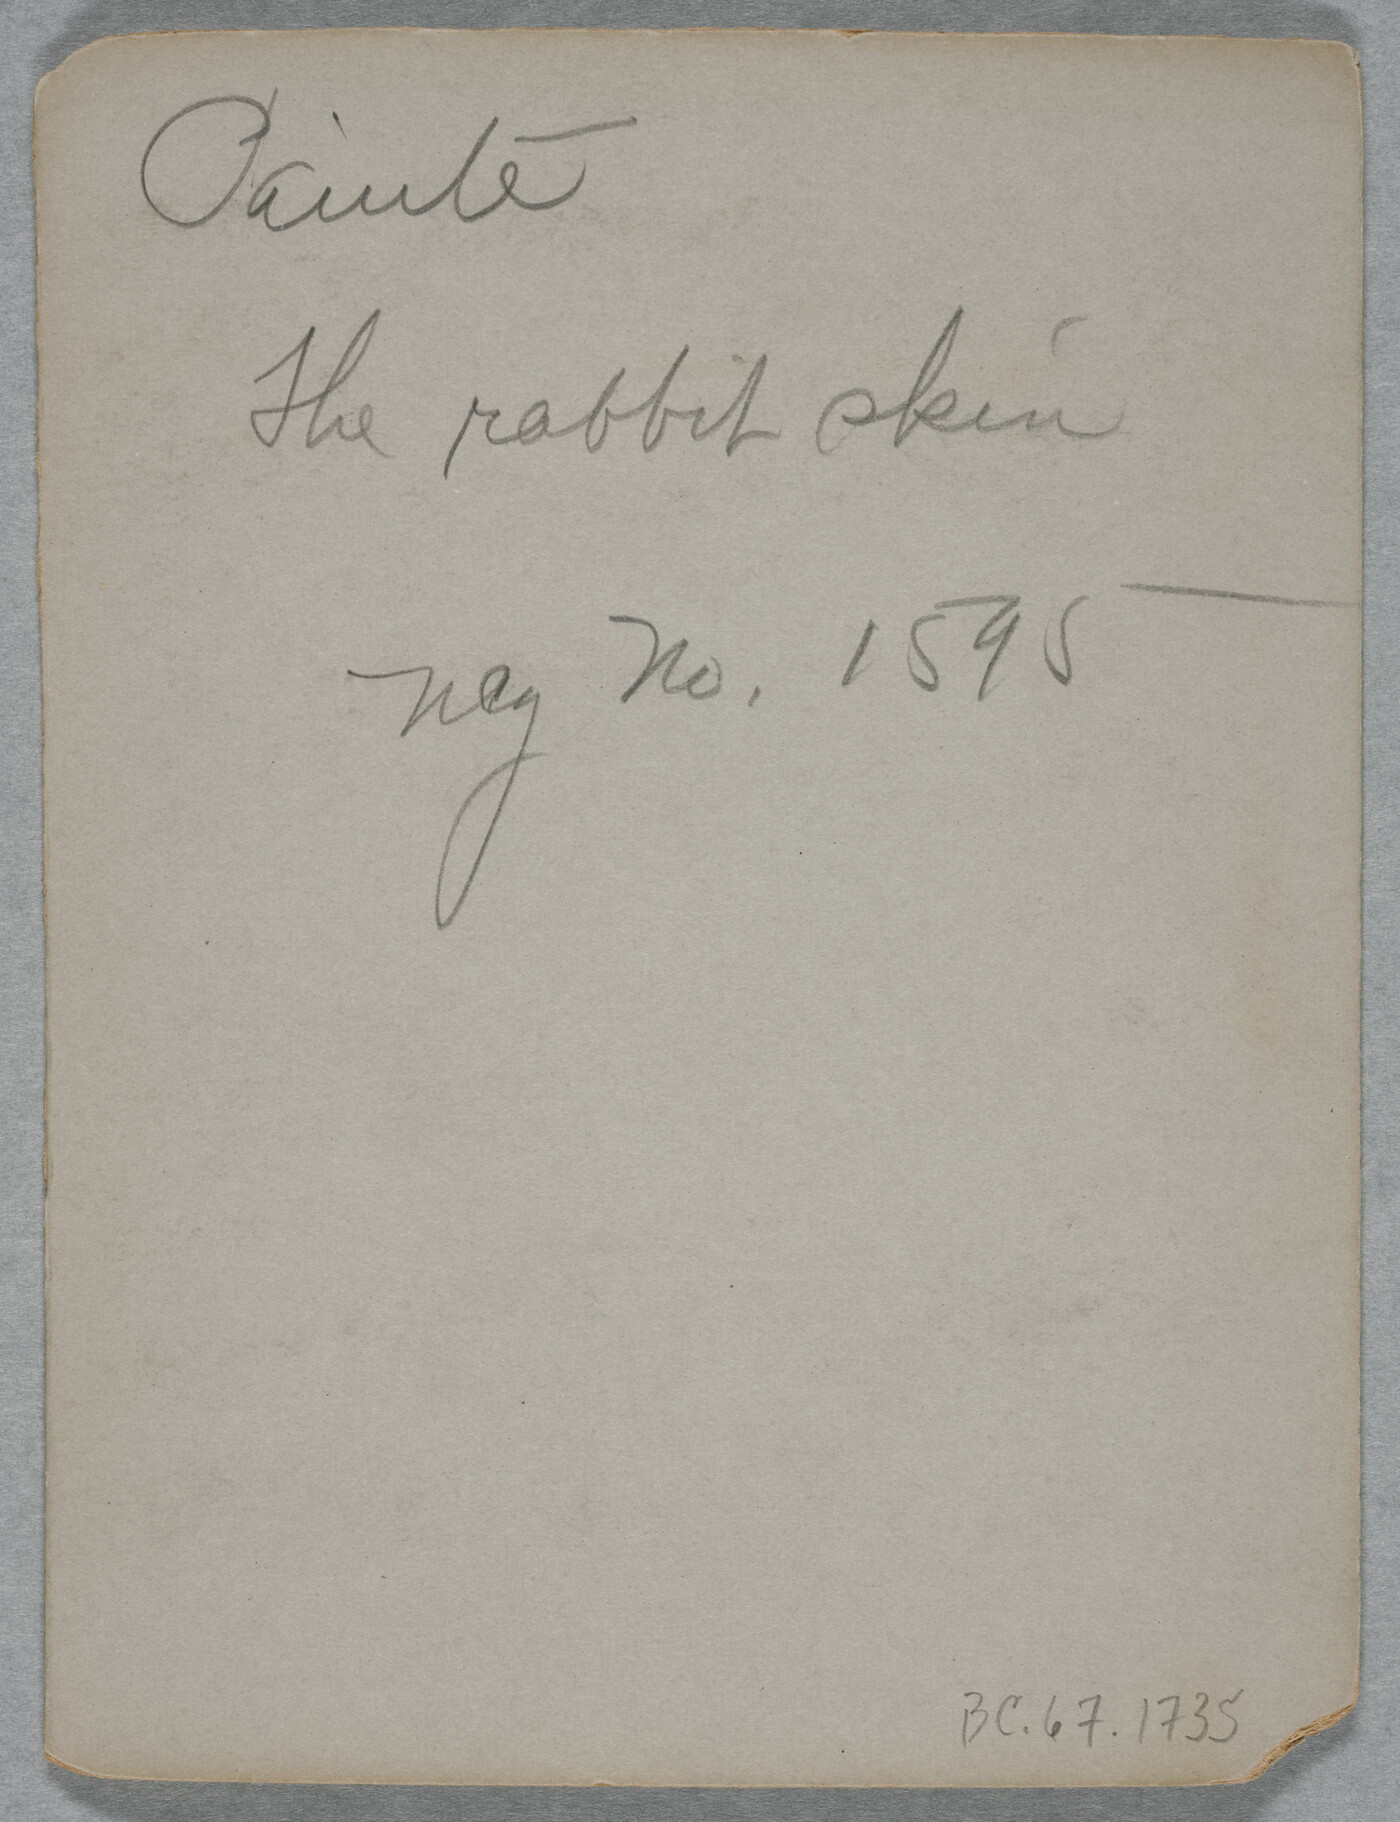 Paiute
The rabbit skin
Neg No. 1595
BC.67.1735